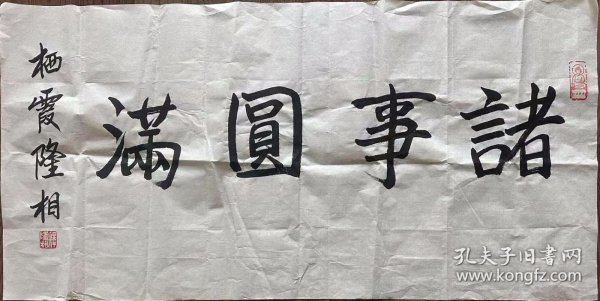 諸事圓滿
栖霞隆相
孔夫子旧书网
www.kongfz.com